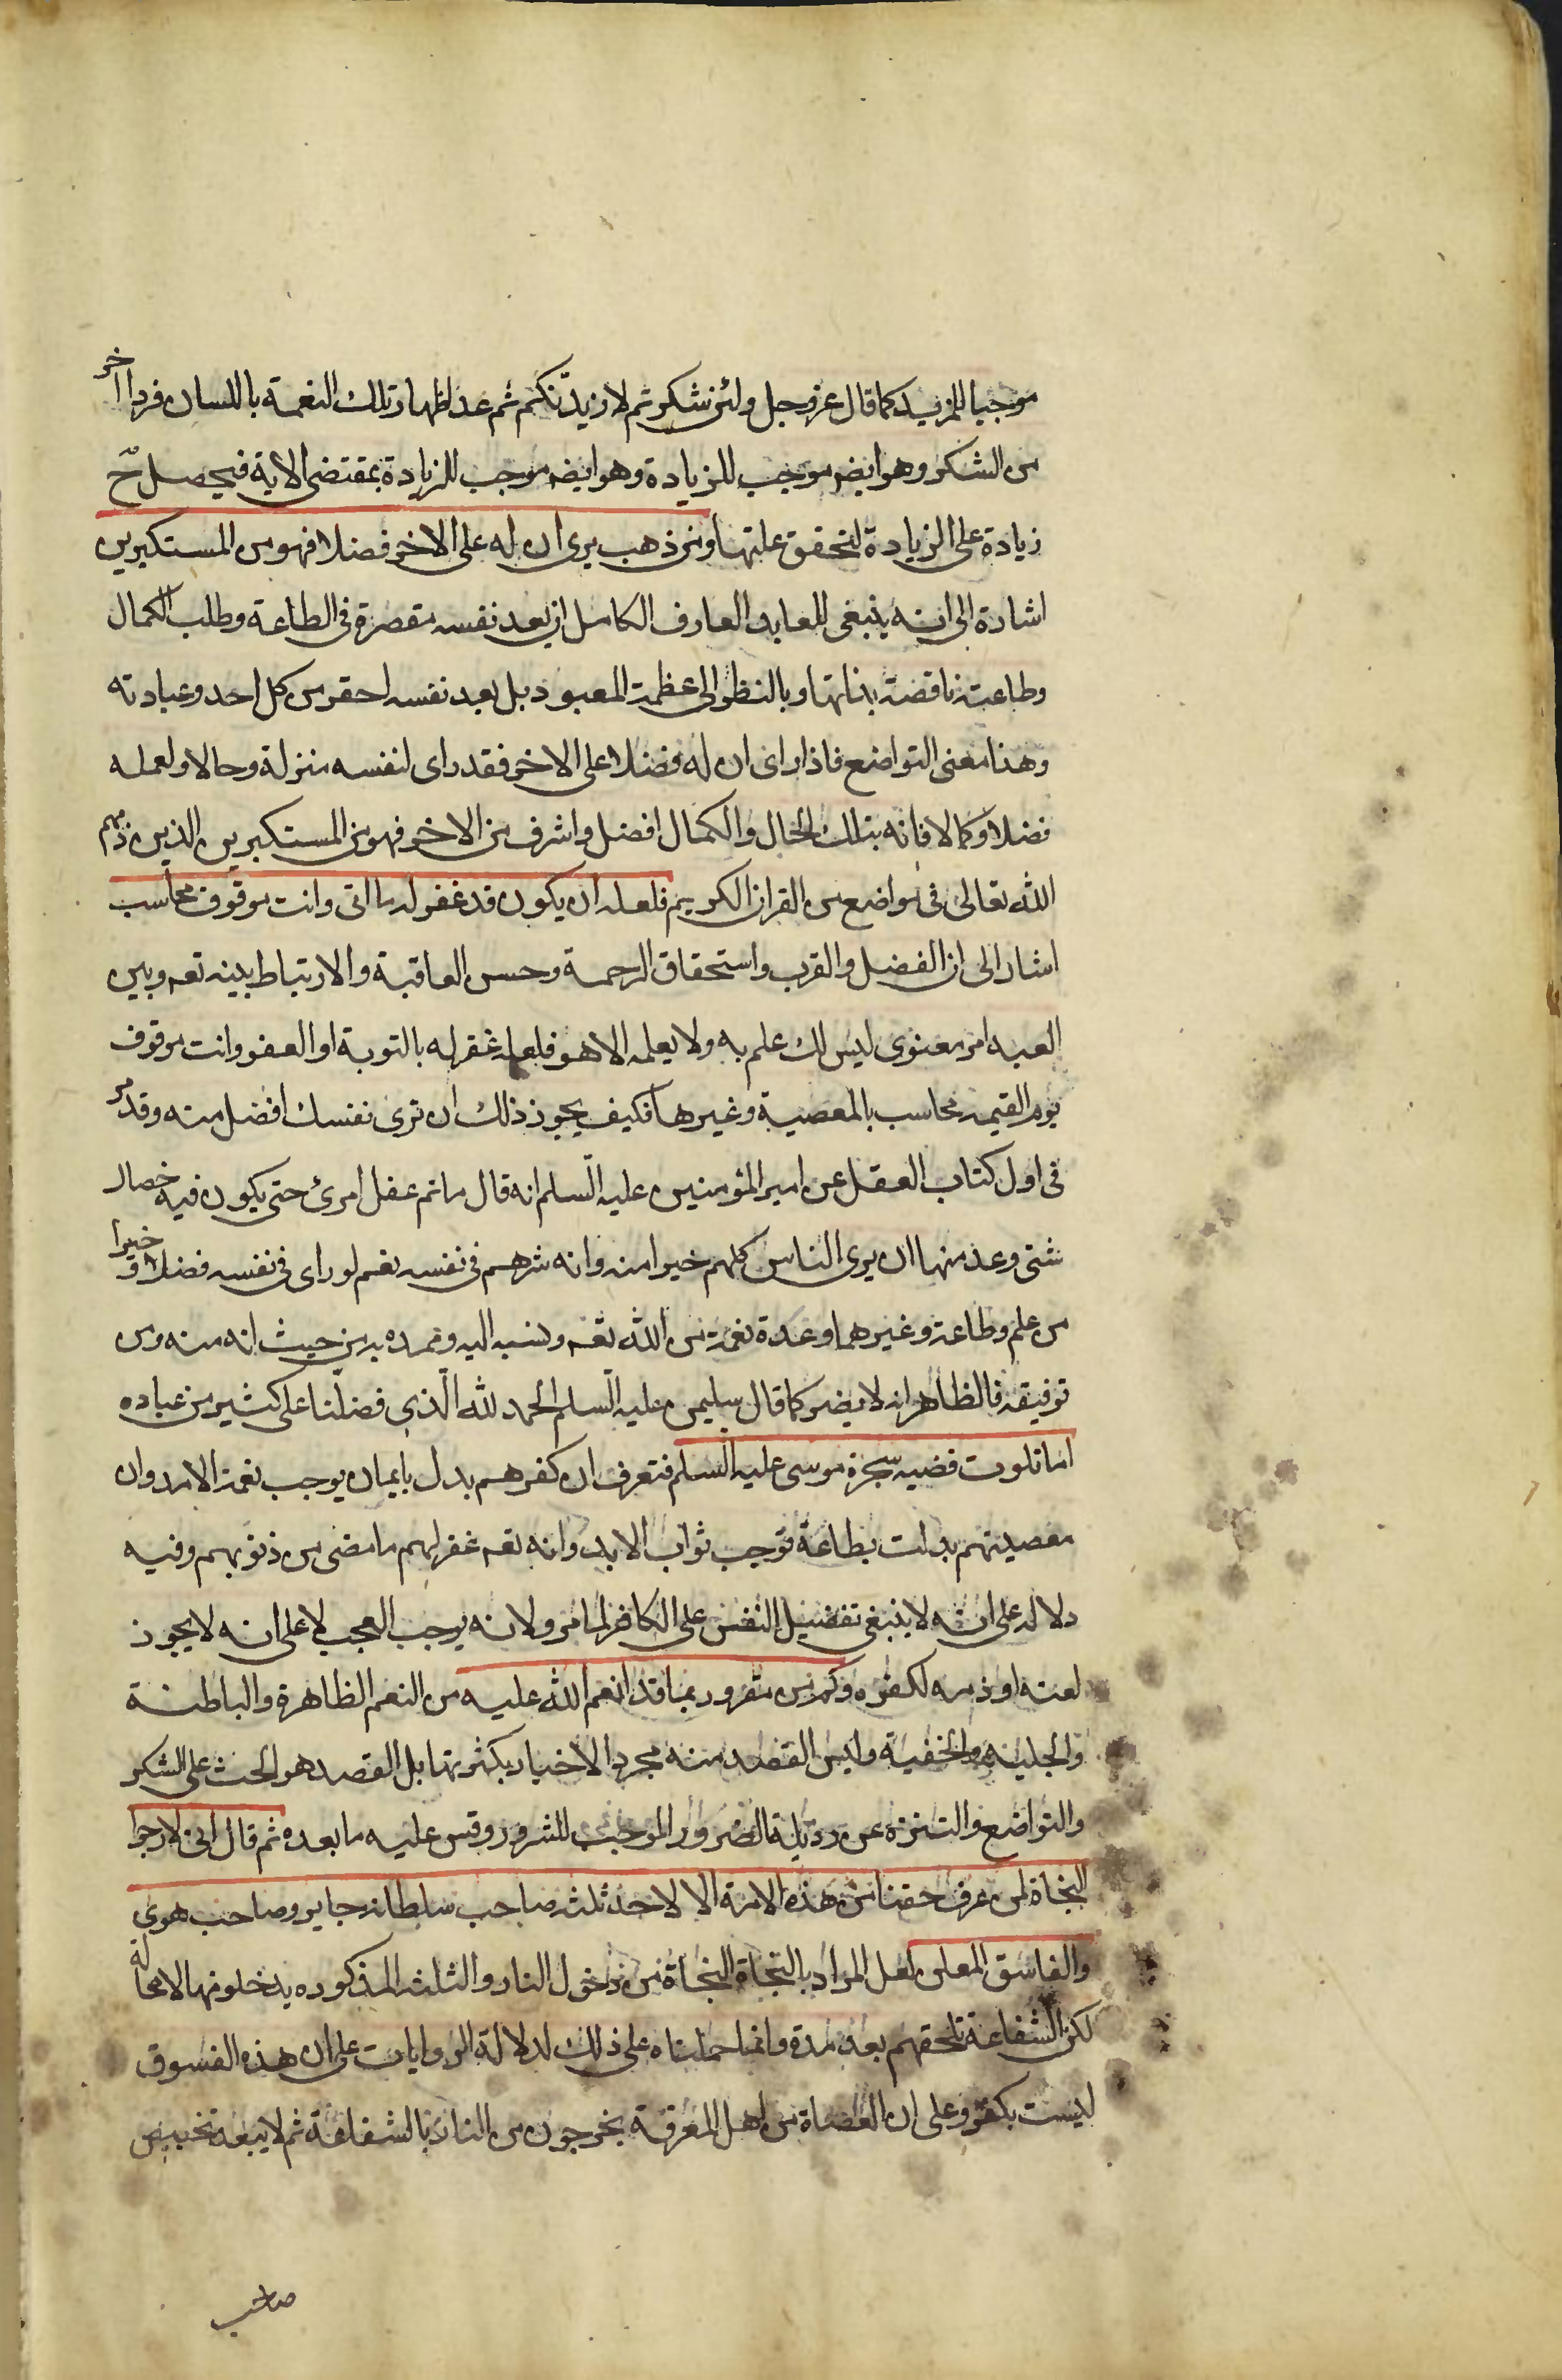 موجبا للمزيد كما قال عز وجل ولئن شكرتم لازيدنكم ثم عد اظهار تلك النعمة باللسان فردا اخر
من الشكر وهو ايضا موجب للزيادة وهو ايضا موجب للزيادة بمقتضى الاية فيحصل ح
زيادة على الزيادة لتحقق علتها ومن ذهب يرى ان له على الاخر فضلا فهو من المستكبرين
اشارة الى انه ينبغى للعابد العارف الكامل ان يعد نفسه مقصرة فى الطاعة وطلب الكمال
وطاعته ناقصة بذاتها وبالنظر الى عظمة المعبود بل يعد نفسه احقر من كل احد وعبادته
وهذا معنى التواضع فاذا راى ان له فضلا على الاخر فقد راى لنفسه منزلة وحالا ولعمله
فضلا وكمالا فانه بتلك الحال والكمال افضل واشرف من الاخر فهو من المستكبرين الذين ذمهم
الله تعالى فى مواضع من القران الكريم فلعله ان يكون قد غفر له ما اتى وانت موقوف محاسب
اشار الى ان الفضل والقرب واستحقاق الرحمة وحسن العاقبة والارتباط بينه تعه وبين
العبد امر معنوى ليس لك علم به ولا يعلمه الا هو فلعله غفر له بالتوبة او العفو وانت موقوف
يوم القيمة محاسب بالمعصية وغيرها فكيف يجوز ذلك ان ترى نفسك افضل منه وقد مر
فى اول كتاب العقل عن امير المؤمنين عليه السلم انه قال ما تم عقل امرئ حتى يكون فيه خصال
شتى وعد منها ان يرى الناس كلهم خيرا منه وانه شرهم فى نفسه نعم لو راى فى نفسه فضلا وخيرا
من علم وطاعة وغيرهما وعده نعمة من الله تعه ونسبه اليه وحمده به من حيث انه منه ومن
توفيقه فالظاهر انه لا يضر كما قال سليمن عليه السلم الحمد لله الذى فضلنا على كثير من عباده
اما تلوت قضية سحرة موسى عليه السلم فتعرف ان كفرهم بدل بايمان يوجب نعمة الابد وان
معصيتهم بدلت بطاعة توجب ثواب الابد وانه تعه غفر لهم ما مضى من ذنوبهم وفيه
دلالة على انه لا ينبغى تفضيل النفس على الكافر لما مر ولانه يوجب العجب لا على انه لا يجوز
لعنه او ذمه لكفره وكم من مغرور بما قد انعم الله عليه من النعم الظاهرة والباطنة
والجلية والخفية وليس القصد منه مجرد الاخبار بكثرتها بل القصد هو الحث على الشكر
والتواضع والتنزه عن رذيلة الغرور الموجب للشرور وقس عليه ما بعده ثم قال انى لارجوا
النجاة لمن عرف حقنا من هذه الامة الا لاحد ثلثة صاحب سلطان جاير وصاحب هوى
والفاسق المعلن لعل المراد بالنجاة النجاة من دخول النار والثلثة المذكوره يدخلونها لا محالة
لكن الشفاعة تلحقهم بعد مدة وانما حملناه على ذلك لدلالة الروايات على ان هذه الفسوق
ليست بكفر وعلى ان العصاة من اهل المعرفة يخرجون من النار بالشفاعة ثم لا يبعد تخصيص
صاحب